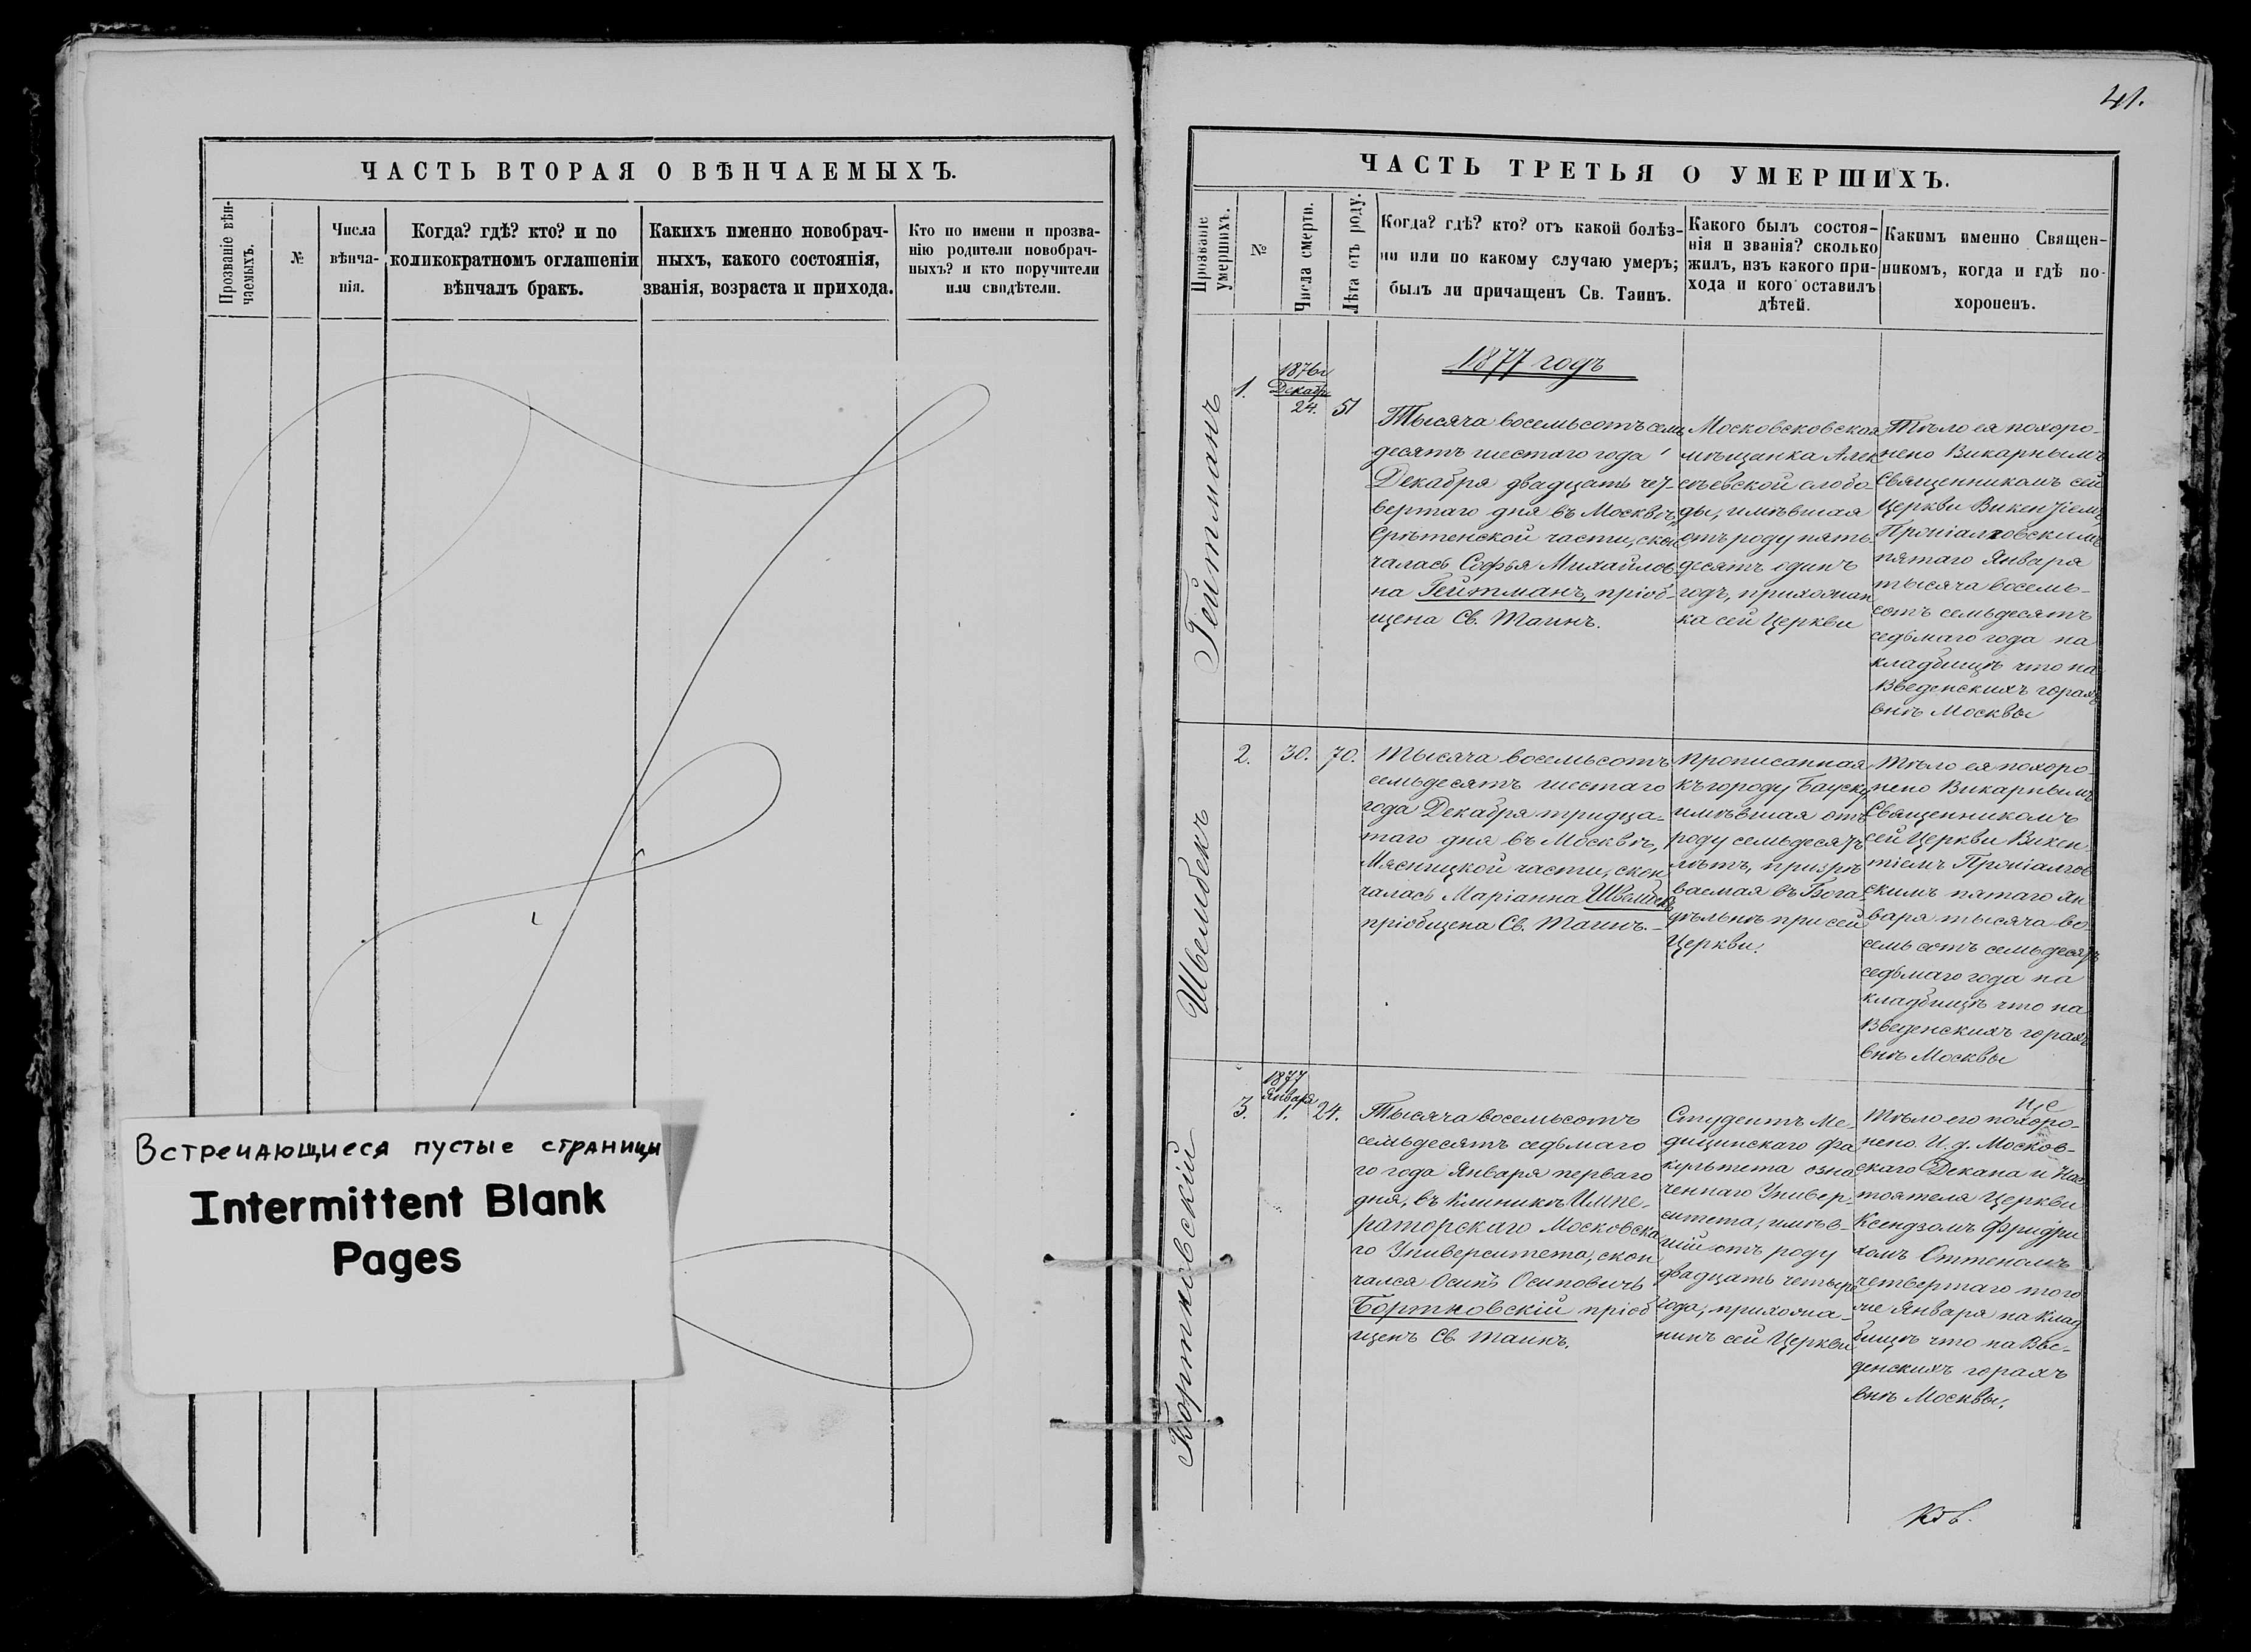 ЧАСТЬ ВТОРАЯ О ВѢНЧАЕМЫХЪ.
Прозваніе вѣн-
чаемыхъ.
№
Числа
вѣнча-
нія.
Когда? гдѣ? кто? и по
коликократномъ оглашеніи
вѣнчалъ бракъ.
Какихъ именно новобрач-
ныхъ, какого состоянія,
званія, возраста и прихода.
Кто по имени и прозва-
нію родители новобрач-
ныхъ? и кто поручители
или свидѣтели.
Встречающиеся пустые страницы
Intermittent Blank
Pages
41.
ЧАСТЬ ТРЕТЬЯ О УМЕРШИХЪ.
Прозваніе
умершихъ.
№
Числа смерти.
Лѣта отъ роду.
Когда? гдѣ? кто? отъ какой болѣз-
ни или по какому случаю умеръ;
былъ ли причащенъ Св. Таинъ.
Какого былъ состоя-
нія и званія? сколько
жилъ, изъ какого при-
хода и кого оставилъ
дѣтей.
Какимъ именно Священ-
никомъ, когда и гдѣ по-
хороненъ.
1877 годъ
Гейтманъ
1.
1876г
Декабр
24.
51
Тысяча восемьсотъ семь
десятъ шестаго года
Декабря двадцать чет-
вертаго дня въ Москвѣ,
Срѣтенской части, скон
чалась Софья Михайлов-
на Гейтманъ, пріоб-
щена Св. Таинъ.
Московсковская
мѣщанка Алек
сѣевской слобо-
ды, имѣвшая
отъ роду пять
десятъ одинъ
годъ, прихожан
ка сей Церкви
Тѣло ея похоро-
нено Викарнымъ
Священникомъ сей
Церкви Викентіемъ
Проніалговскимъ
пятаго Января
тысяча восемь-
сотъ семьдесятъ
седьмаго года на
кладбищѣ что на
Введенскихъ горахъ
внѣ Москвы
Швембекъ
2.
30.
70.
Тысяча восемьсотъ
семьдесятъ шестаго
года Декабря тридца-
таго дня въ Москвѣ,
Мясницкой части, скон
чалась Маріанна Швембекъ
пріобщена Св. Таинъ.-
Прописанная
къ городу Бауску,
имѣвшая отъ
роду семьдесятъ
лѣтъ, призрѣ
ваемая въ Бога
дѣльнѣ при сей
Церкви.
Тѣло ея похоро-
нено Викарнымъ
Священникомъ
сей Церкви Викен
тіемъ Проніалгов
скимъ пятаго Ян
варя тысяча во-
семь сотъ семьдесятъ
седьмаго года на
кладбищѣ что на
Введенскихъ горахъ
внѣ Москвы
Бортновскій
3
1877
Января
1.
24.
Тысяча восемьсотъ
семьдесятъ седьмаго
го года Января перваго
дня, въ Клиникѣ Импе-
раторскаго Московска
го Университета, скон
чался Осипъ Осиповичъ
Бортновскій пріоб
щенъ Св. Таинъ.
Студентъ Ме-
дицинскаго Фа
культета озна
ченнаго Универ
ситета, имѣв-
шій отъ роду
двадцать четыре
года, прихожа-
нинъ сей Церкви
Тѣло его похоро-
нено И. д. Москов-
скаго Декана и Нас
тоятеля Церкви
Ксендзомъ Фридри
хомъ Оттеномъ
четвертаго того
же Января на клад
бищѣ что на Вве-
денскихъ горахъ
внѣ Москвы.